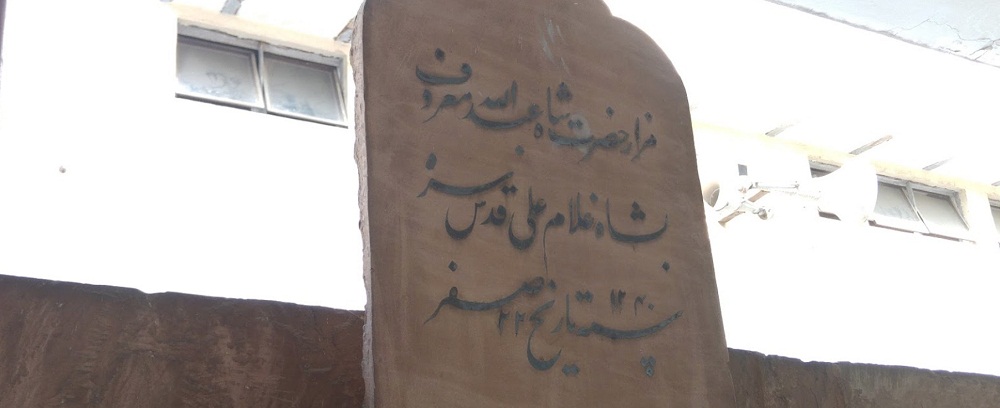 مزار حضرت شاہ عبد اللہ معروف
بشاہ غلام علی قدس سرہ
۱۲۴۰ بتاریخ ۲۲ صفر